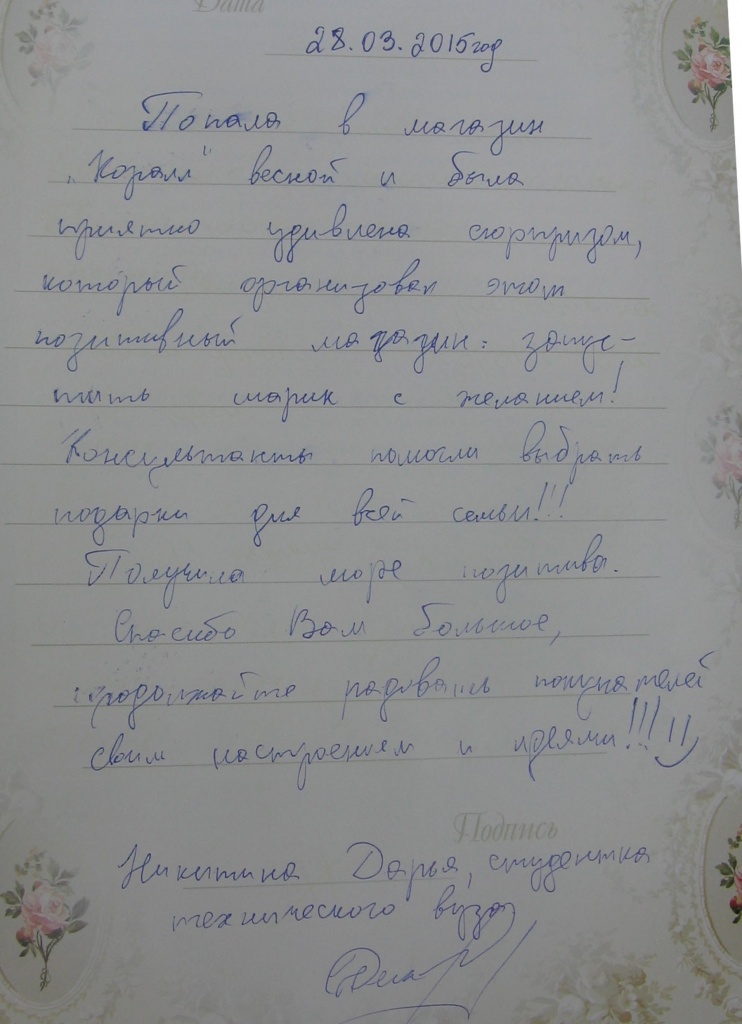 Дата
28.03.2015год
Попала в магазин
„Коралл" весной и была
приятно удивлена сюрпризом,
который организовал этот
позитивный магазин: запус-
тить шарик с желанием!
Консультанты помогли выбрать
подарки для всей семьи!!!
Получила море позитива.
Спасибо Вам большое,
продолжайте радовать покупателей
своим настроением и идеями!!!
Подпись
Никитина Дарья, студентка
технического вуза